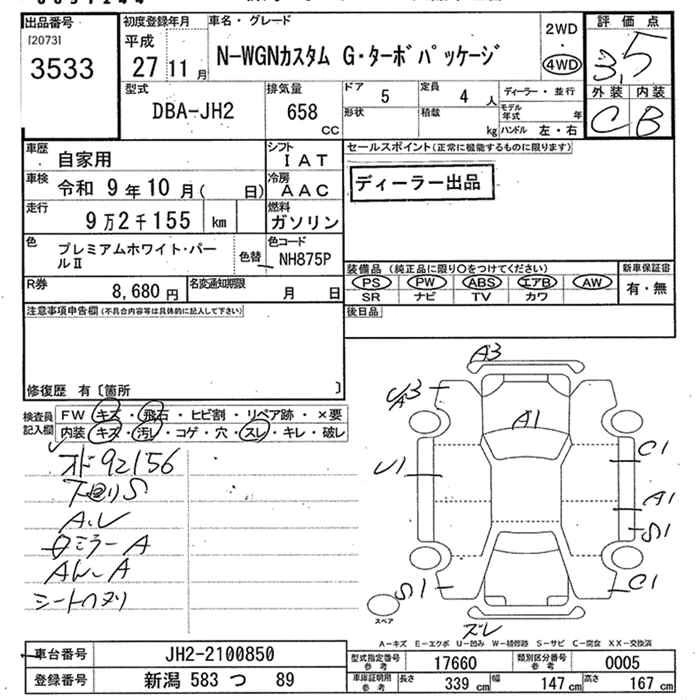 出品番号
[2073]
3533
初度登録年月
平成
27 11 月
車名・グレード
N-WGNカスタム G・ターボパッケージ
2WD
・
4WD
評価点
3.5
外装 内装
C B
型式
DBA-JH2
排気量
658
CC
ドア 5
定員 4 人
形状
積載 kg
ディーラー・並行
モデル年式 年
ハンドル 左・右
車歴 自家用
シフト IAT
車検 令和 9年 10月( 日)
冷房 AAC
走行 9万2千155 km
燃料 ガソリン
色 プレミアムホワイト・パールⅡ
色替
色コード NH875P
R券 8,680 円
名変通知期限 月 日
セールスポイント(正常に機能するものに限ります)
ディーラー出品
装備品(純正品に限り○をつけてください)
PS PW ABS エアB AW
SR ナビ TV カワ
新車保証書
有・無
後日品
注意事項申告欄(不具合内容等は具体的に記入して下さい)
修復歴 有 [箇所 ]
検査員記入欄
FW キズ・飛石・ヒビ割・リペア跡・×要
内装 キズ・汚レ・コゲ・穴・スレ・キレ・破レ
オド92156
下回りS
A.L
シートハヌリ
A3
A3
A1
U1
C1
A1
S1
S1
C1
ズレ
スペア
A-キズ E-エクボ U-凹み W-補修跡 S-サビ C-腐食 XX-交換済
車台番号 JH2-2100850
登録番号 新潟 583 つ 89
型式指定番号 参考 17660
類別区分番号 参考 0005
車庫証明用 参考 長さ 339 cm 幅 147 cm 高さ 167 cm